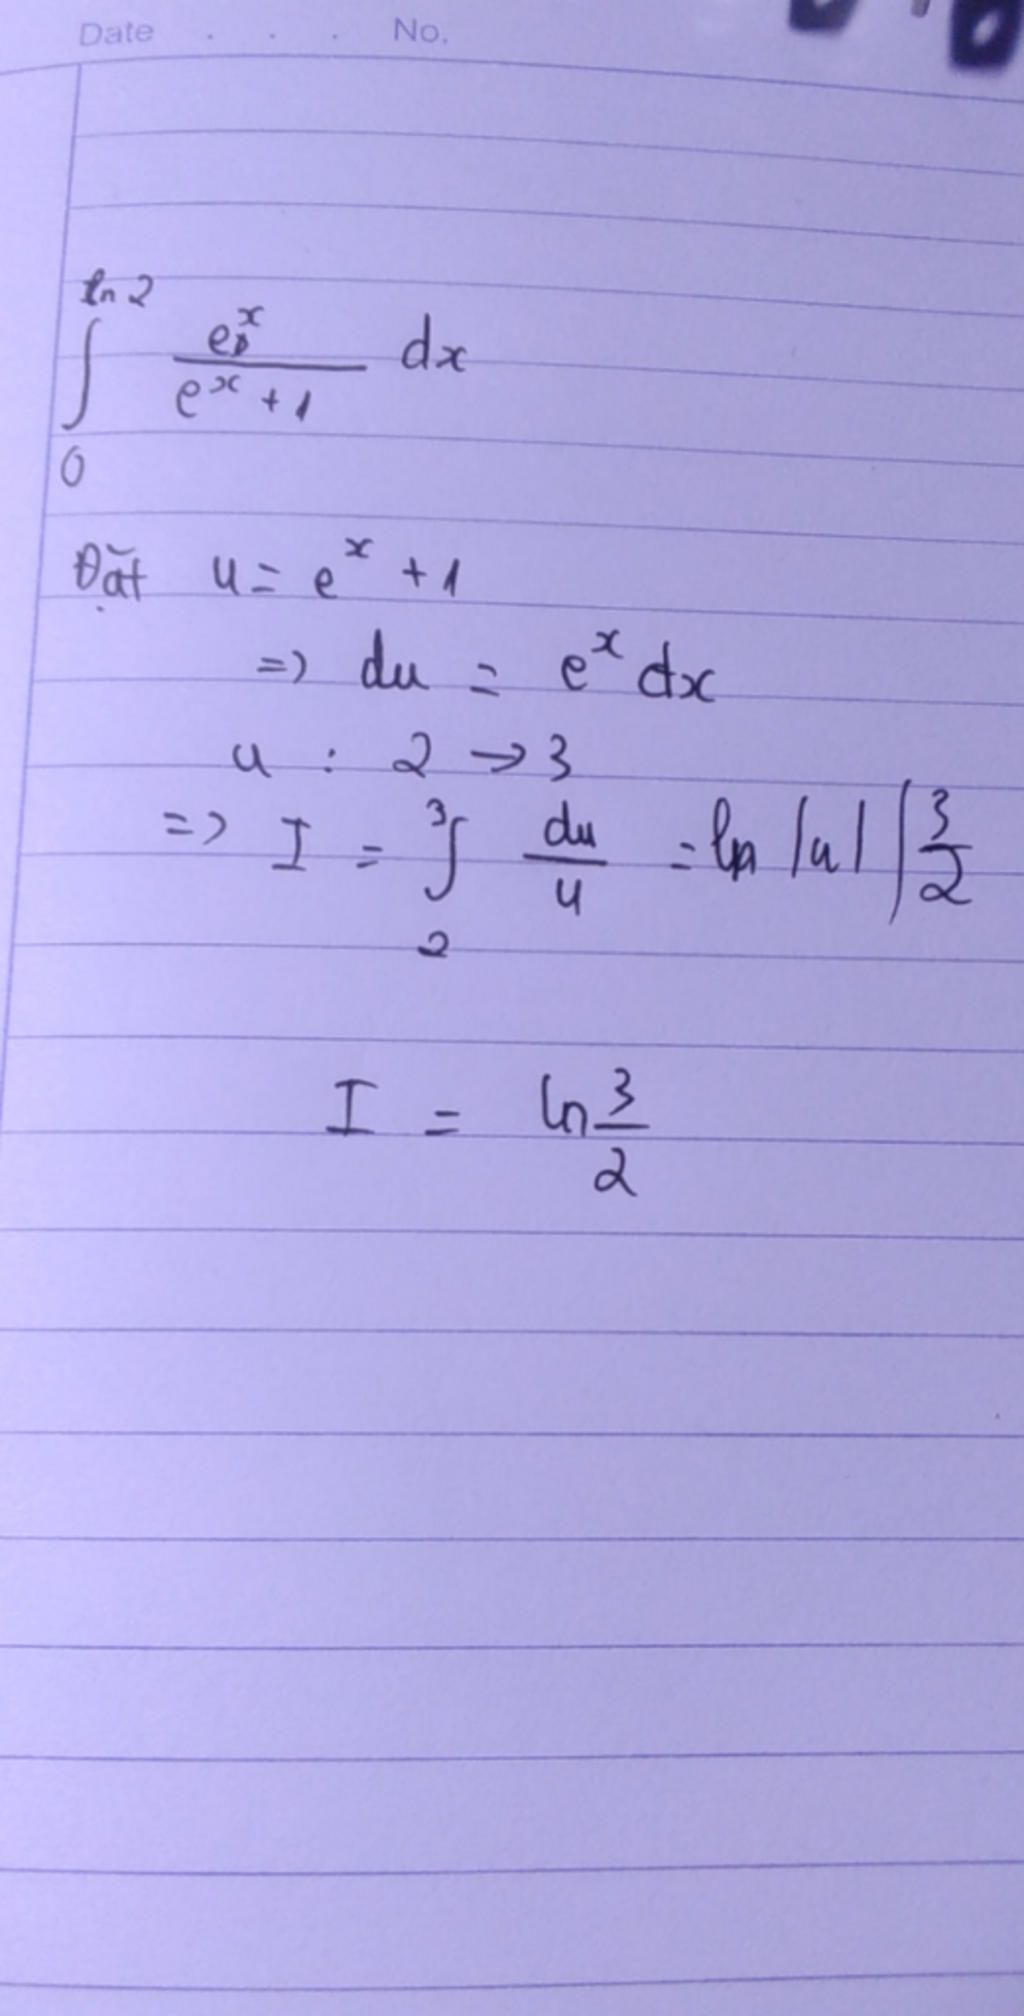 Date . . . No.
∫₀^{ln 2} e^x / (e^x + 1) dx
Đặt u = e^x + 1
=> du = e^x dx
u : 2 → 3
=> I = ∫₂³ du/u = ln |u| | 3/2
I = ln 3/2